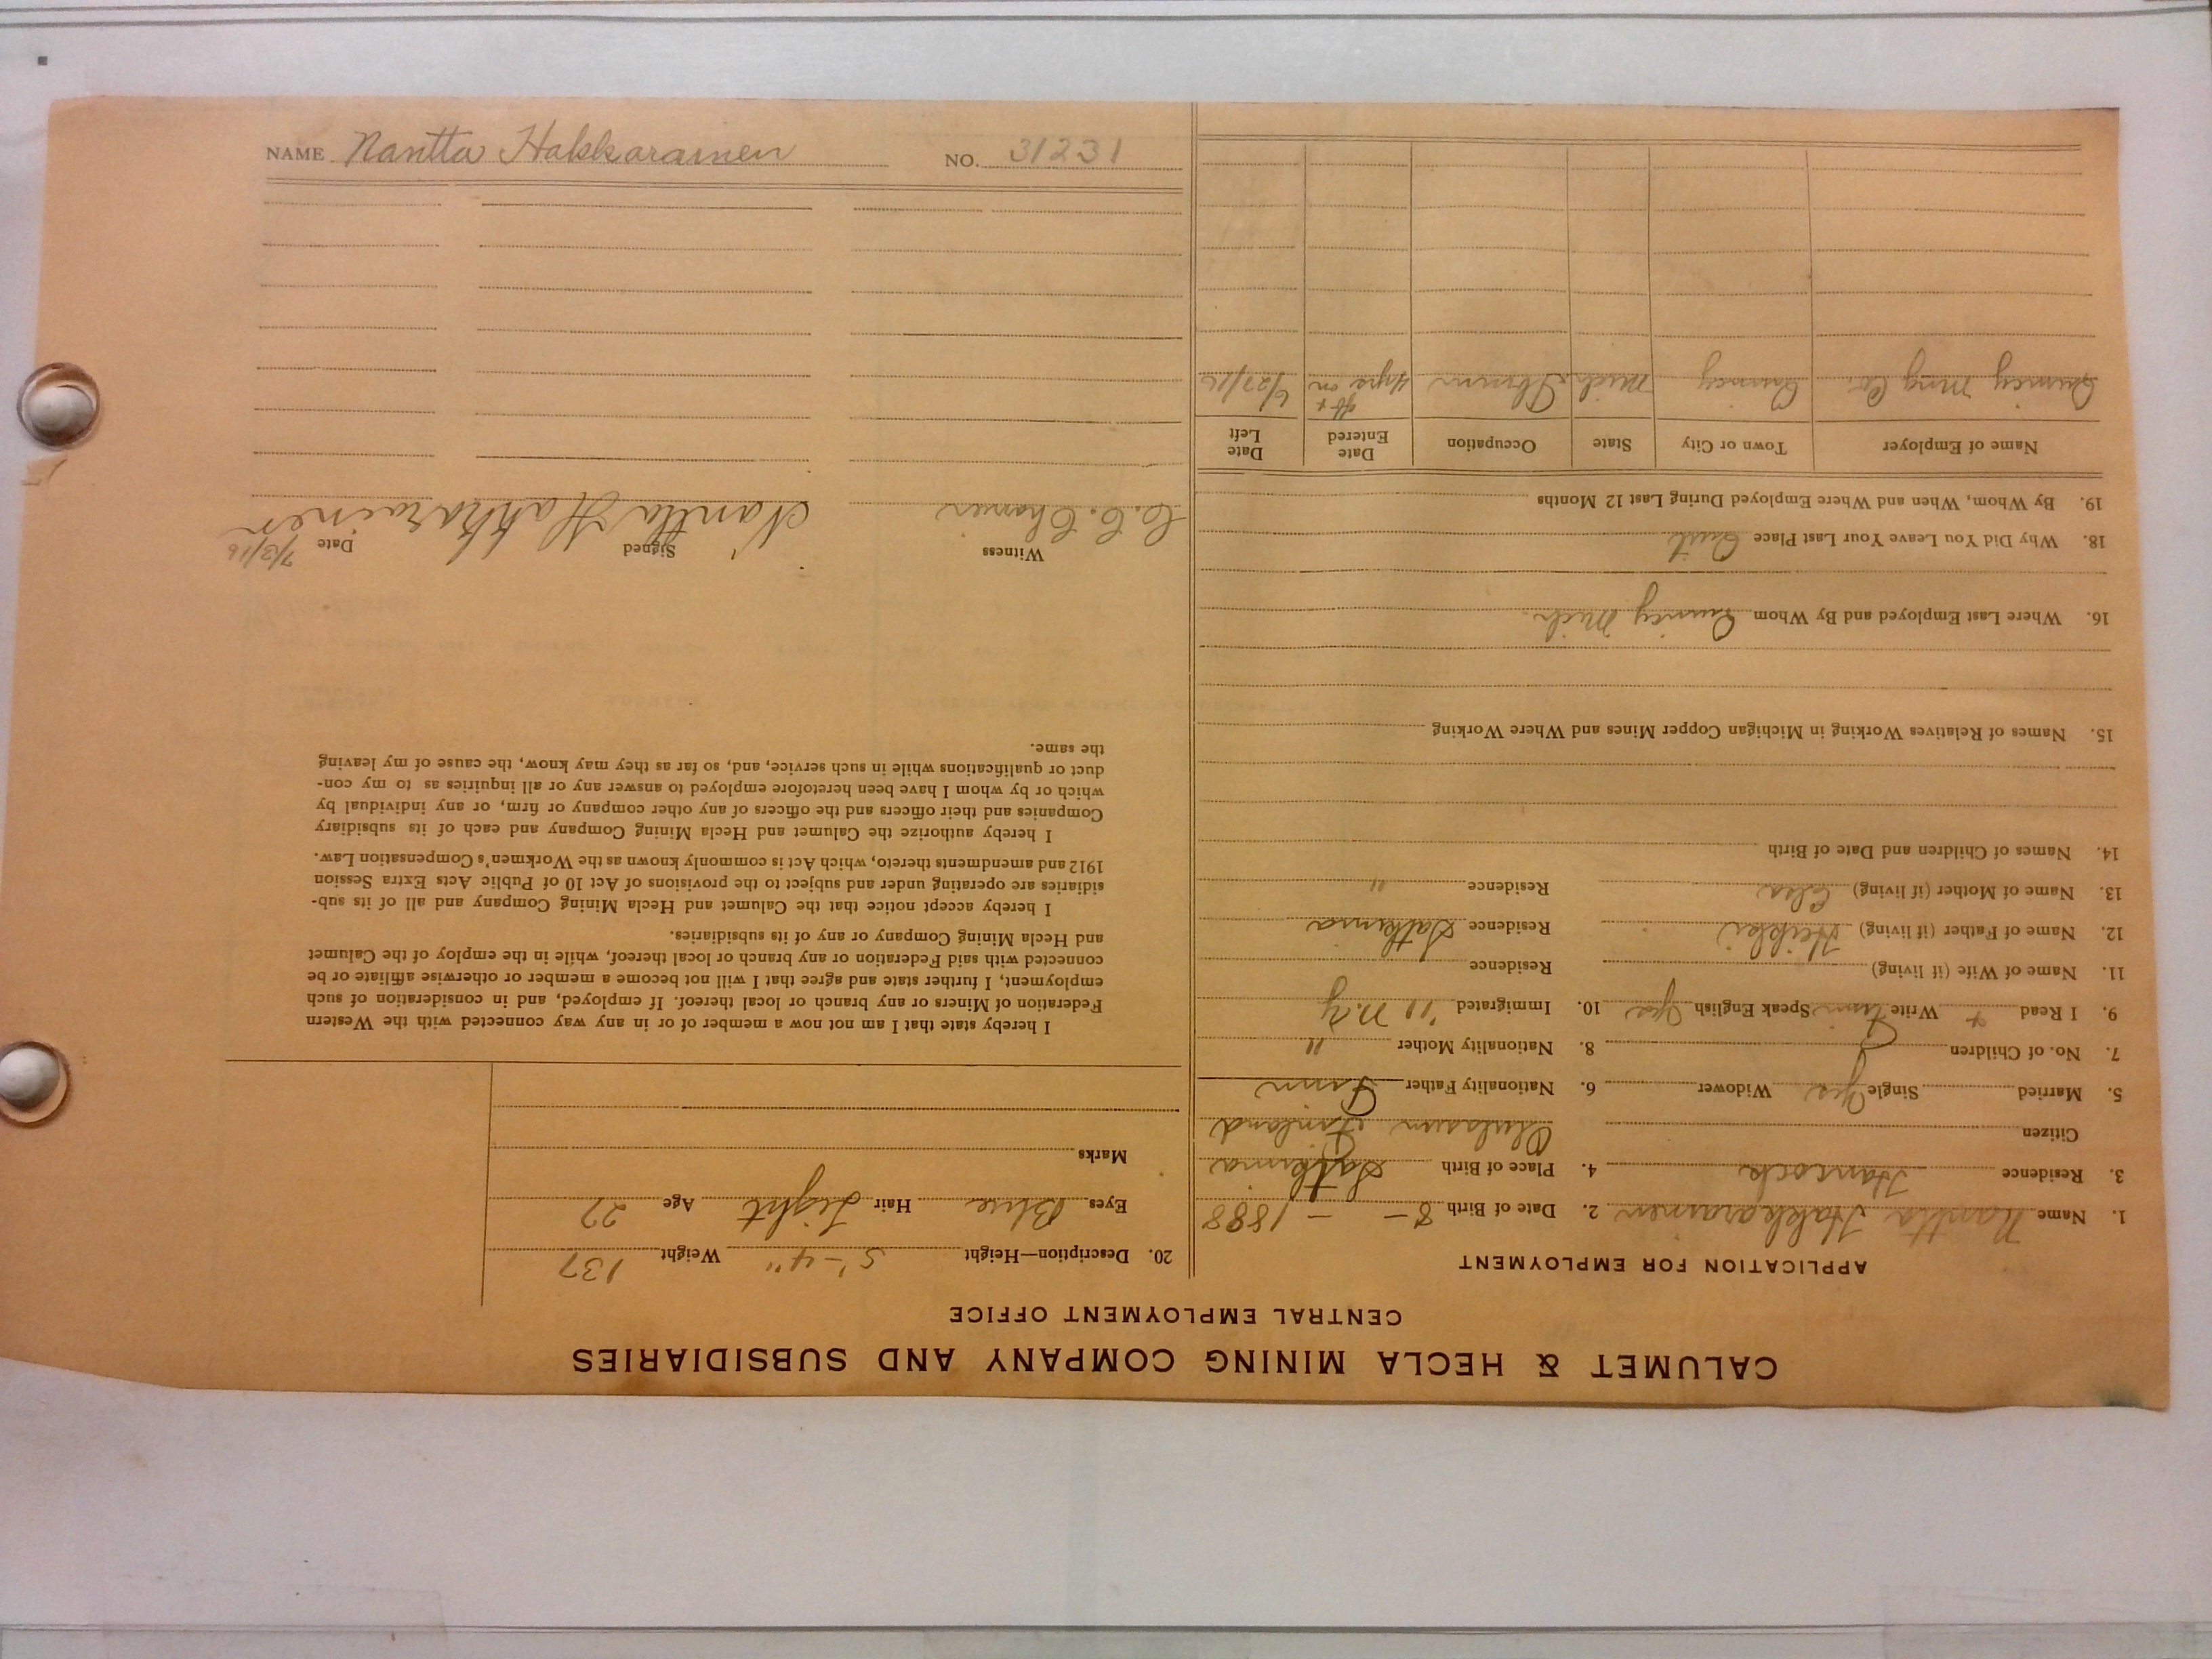 NAME Nantta Hakkarainen NO. 31231
CALUMET & HECLA MINING COMPANY AND SUBSIDIARIES
CENTRAL EMPLOYMENT OFFICE
APPLICATION FOR EMPLOYMENT
1. Name Nantta Hakkarainen 2. Date of Birth 8 – – 1888
3. Residence Hancock 4. Place of Birth
Citizen Finland
5. Married Single Yes Widower 6. Nationality Father Finn
7. No. of Children 8. Nationality Mother "
9. I Read + Write Finn Speak English Yes 10. Immigrated '11 N.Y
11. Name of Wife (if living) Residence
12. Name of Father (if living) Heikki Residence
13. Name of Mother (if living) Residence "
14. Names of Children and Date of Birth
15. Names of Relatives Working in Michigan Copper Mines and Where Working
16. Where Last Employed and By Whom Quincy Mich.
18. Why Did You Leave Your Last Place Quit
19. By Whom, When and Where Employed During Last 12 Months
Name of Employer Town or City State Occupation Date Entered Date Left
Quincy Mng Co. Quincy Mich 4 yrs on off + 6/27/16
20. Description—Height 5'-4" Weight 137
Eyes Blue Hair Light Age 27
Marks
I hereby state that I am not now a member of or in any way connected with the Western
Federation of Miners or any branch or local thereof. If employed, and in consideration of such
employment, I further state and agree that I will not become a member or otherwise affiliate or be
connected with said Federation or any branch or local thereof, while in the employ of the Calumet
and Hecla Mining Company or any of its subsidiaries.
I hereby accept notice that the Calumet and Hecla Mining Company and all of its sub-
sidiaries are operating under and subject to the provisions of Act 10 of Public Acts Extra Session
1912 and amendments thereto, which Act is commonly known as the Workmen's Compensation Law.
I hereby authorize the Calumet and Hecla Mining Company and each of its subsidiary
Companies and their officers and the officers of any other company or firm, or any individual by
which or by whom I have been heretofore employed to answer any or all inquiries as to my con-
duct or qualifications while in such service, and, so far as they may know, the cause of my leaving
the same.
Witness Signed Date 7/3/16
C. C. Nantta Hakkarainen